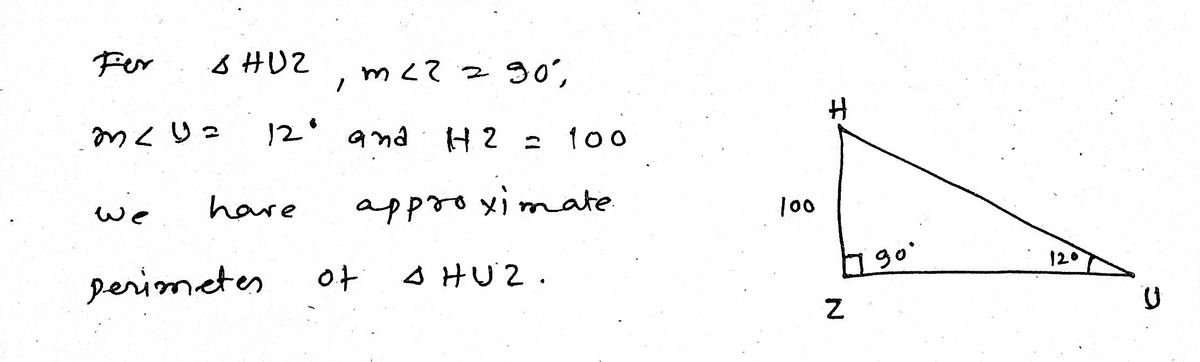 For ΔHUZ, m∠Z = 90°,
m∠U = 12° and HZ = 100
we have approximate
perimeter of ΔHUZ.
H
100
90°
12°
Z
U